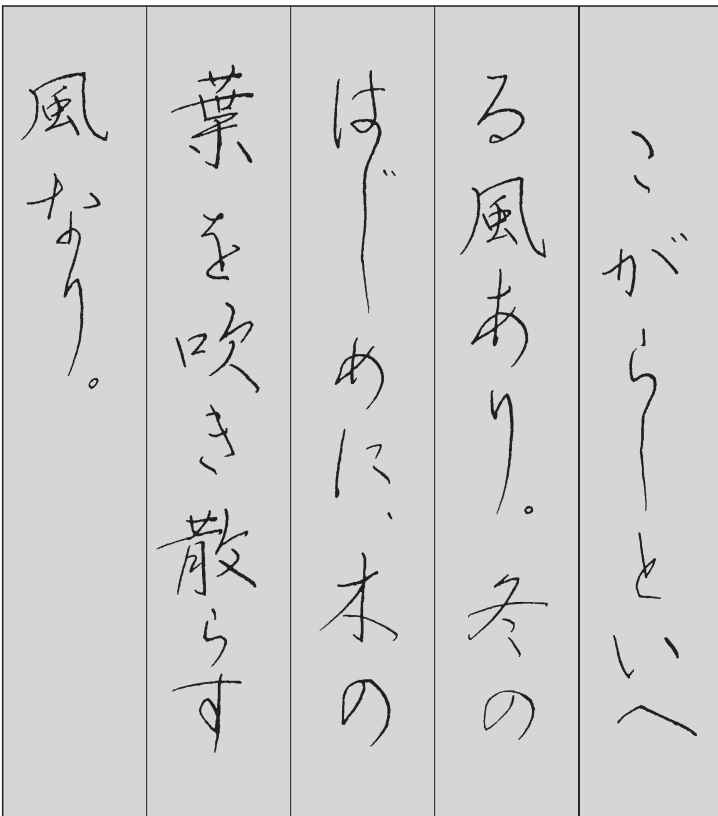 こがらしといへ
る風あり。冬の
はじめに、木の
葉を吹き散らす
風なり。